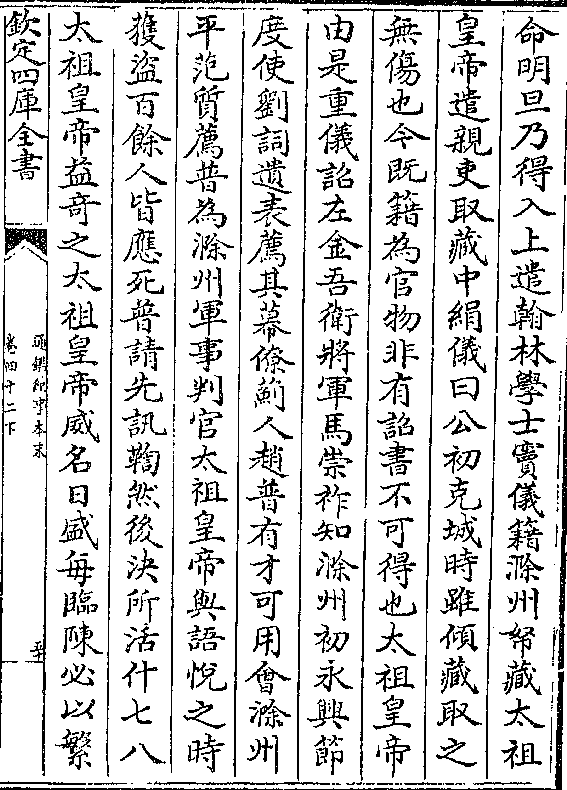 命明旦乃得入上遣翰林學士竇儀籍滁州帑藏太祖
皇帝遣親吏取藏中絹儀曰公初克城時雖傾藏取之
無傷也今既籍為官物非有詔書不可得也太祖皇帝
由是重儀詔左金吾衛將軍馬崇祚知滁州初永興節
度使劉詞遺表薦其幕僚薊人趙普有才可用會滁州
平范質薦普為滁州軍事判官太祖皇帝與語悅之時
獲盜百餘人皆應死普請先訊鞫然後決所活什七八
太祖皇帝益奇之太祖皇帝威名日盛每臨陳必以繁
欽定四庫全書
通鑑紀事本末
卷四十二下